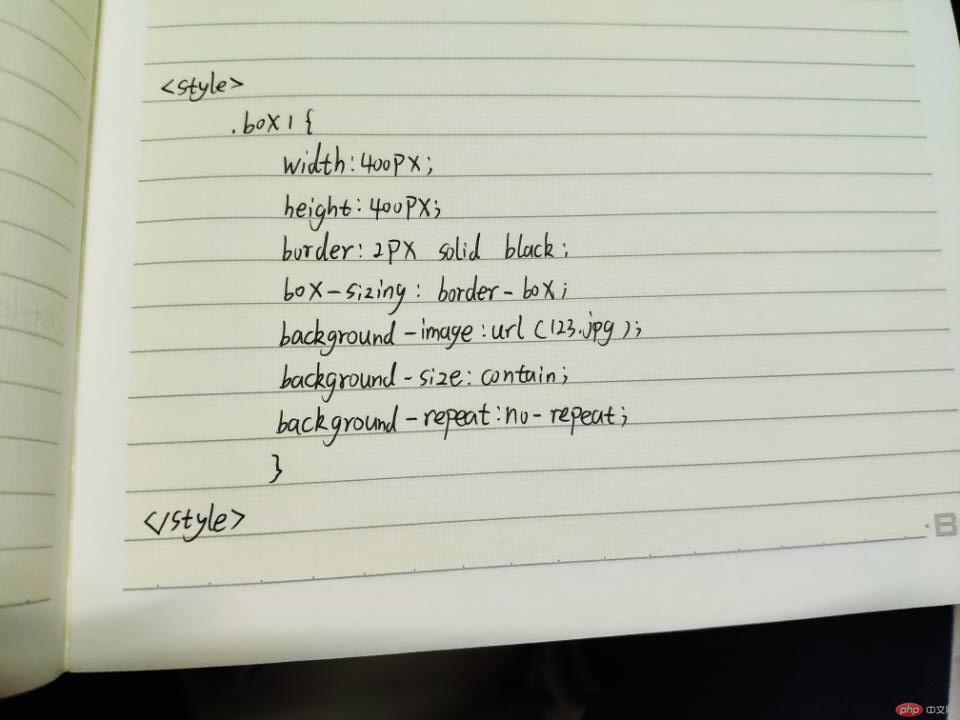 <style>
.box1{
width:400px;
height:400px;
border:2px solid black;
box-sizing: border-box;
background-image:url(123.jpg);
background-size:contain;
background-repeat:no-repeat;
}
</style>
B
php 中文